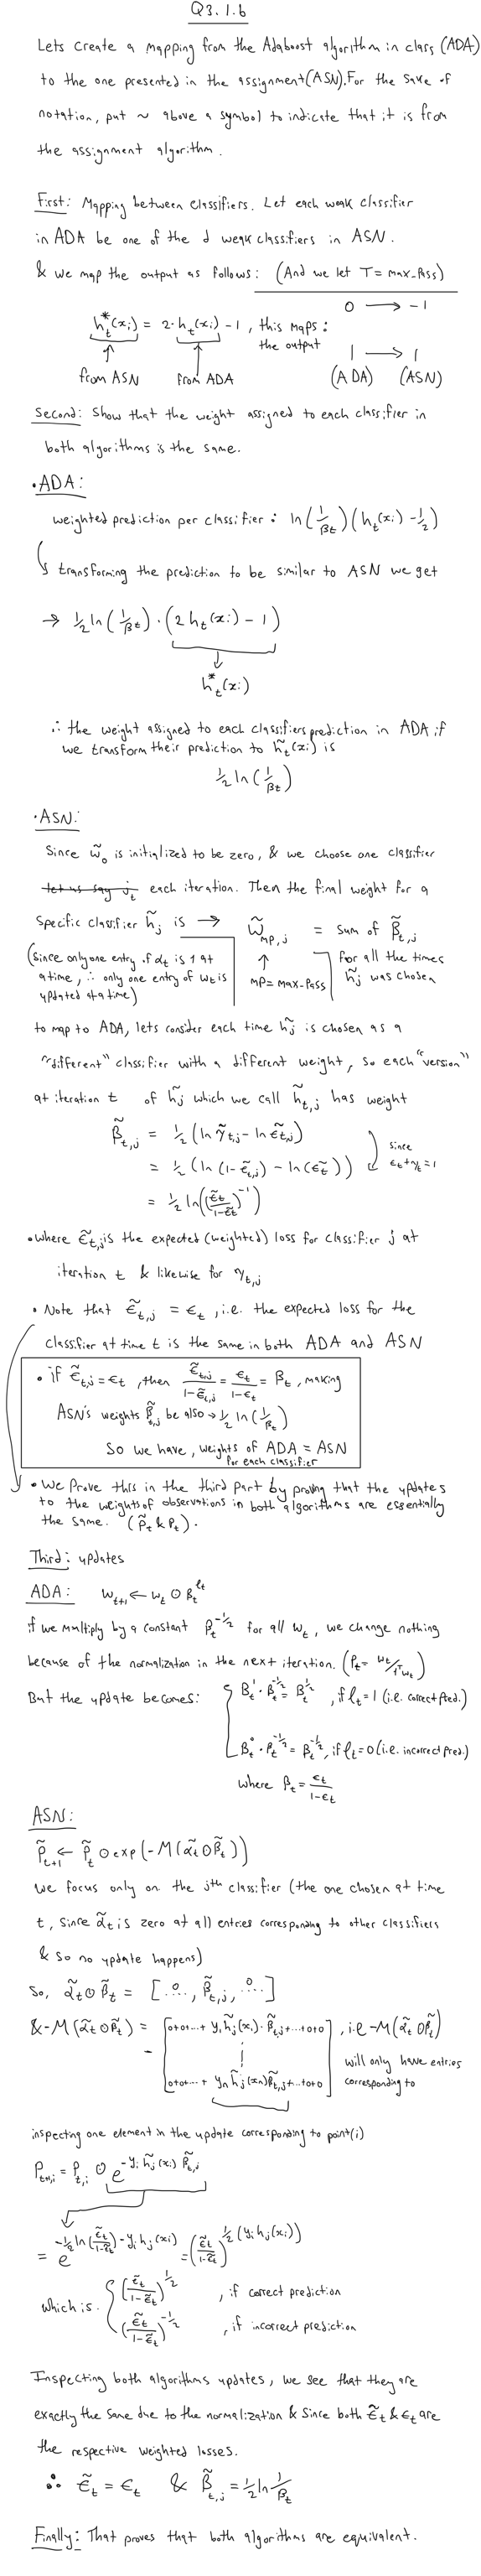 Q3.1.b
Lets create a mapping from the Adaboost algorithm in class (ADA)
to the one presented in the assignment (ASN). For the sake of
notation, put ~ above a symbol to indicate that it is from
the assignment algorithm.
First: Mapping between classifiers. Let each weak classifier
in ADA be one of the d weak classifiers in ASN.
& we map the output as follows: (And we let T = max_pass)
h*_t(x_i) = 2·h_t(x_i) - 1, this maps: the output
0 → -1
1 → 1
from ASN from ADA (ADA) (ASN)
Second: Show that the weight assigned to each classifier in
both algorithms is the same.
• ADA:
weighted prediction per classifier: ln(1/β_t)(h_t(x_i) - 1/2)
↳ transforming the prediction to be similar to ASN we get
→ 1/2 ln(1/β_t)·(2h_t(x_i) - 1)
h*_t(x_i)
∴ the weight assigned to each classifiers prediction in ADA if
we transform their prediction to h̃_t(x_i) is
1/2 ln(1/β_t)
• ASN:
Since w̃_0 is initialized to be zero, & we choose one classifier
let us say j_t each iteration. Then the final weight for a
specific classifier h̃_j is → w̃_{mp,j} = sum of β̃_{t,j}
for all the times h̃_j was chosen
mp = max-pass
(since only one entry if α_t is 1 at
a time, ∴ only one entry of w_t is
updated at a time)
to map to ADA, lets consider each time h̃_j is chosen as a
"different" classifier with a different weight, so each "version"
at iteration t of h̃_j which we call h̃_{t,j} has weight
β̃_{t,j} = 1/2 (ln γ̃_{t,j} - ln ε̃_{t,j})
= 1/2 (ln(1-ε̃_{t,j}) - ln(ε̃_t)) since ε_t + γ_t = 1
= 1/2 ln((ε̃_t/(1-ε̃_t))^{-1})
• where ε̃_{t,j} is the expected (weighted) loss for classifier j at
iteration t & likewise for γ_{t,j}
• Note that ε̃_{t,j} = ε_t, i.e. the expected loss for the
classifier at time t is the same in both ADA and ASN
• if ε̃_{t,j} = ε_t, then ε̃_{t,j}/(1-ε̃_{t,j}) = ε_t/(1-ε_t) = β_t, making
ASN's weights β̃_{t,j} be also → 1/2 ln(1/β_t)
So we have, weights of ADA = ASN
for each classifier
• We prove this in the third part by proving that the updates
to the weights of observations in both algorithms are essentially
the same. (p̃_t & p_t).
Third: updates
ADA: w_{t+1} ← w_t ⊙ β_t^{ℓ_t}
if we multiply by a constant β_t^{-1/2} for all w_t, we change nothing
because of the normalization in the next iteration. (p_t = w_t/1ᵀw_t)
But the update becomes: { β_t^1 · β_t^{-1/2} = β_t^{1/2}, if ℓ_t = 1 (i.e. correct pred.)
β_t^0 · β_t^{-1/2} = β_t^{-1/2}, if ℓ_t = 0 (i.e. incorrect pred.)
where β_t = ε_t/(1-ε_t)
ASN:
p̃_{t+1} ← p̃_t ⊙ exp(-M(α̃_t ⊙ β̃_t))
We focus only on the jth classifier (the one chosen at time
t, since α̃_t is zero at all entries corresponding to other classifiers
& so no update happens)
So, α̃_t ⊙ β̃_t = [..0.., β̃_{t,j}, ..0..]
& -M(α̃_t ⊙ β̃_t) = - [0+0+...+ y_i h̃_j(x_i)·β̃_{t,j}+...+0+0
0+0+...+ y_n h̃_j(x_n)β̃_{t,j}+...+0+0], i.e -M(α̃_t ⊙ β̃_t)
will only have entries
corresponding to
inspecting one element in the update corresponding to point (i)
p_{t+1,i} = p_{t,i} ⊙ e^{-y_i h̃_j(x_i) β̃_{t,j}}
= e^{-1/2 ln(ε̃_t/(1-ε̃_t))·-y_i h_j(x_i)} = (ε̃_t/(1-ε̃_t))^{1/2 (y_i h_j(x_i))}
which is { (ε̃_t/(1-ε̃_t))^{1/2}, if correct prediction
(ε̃_t/(1-ε̃_t))^{-1/2}, if incorrect prediction
Inspecting both algorithms updates, we see that they are
exactly the same due to the normalization & since both ε̃_t & ε_t are
the respective weighted losses.
∴ ε̃_t = ε_t & β̃_{t,j} = 1/2 ln 1/β_t
Finally: That proves that both algorithms are equivalent.